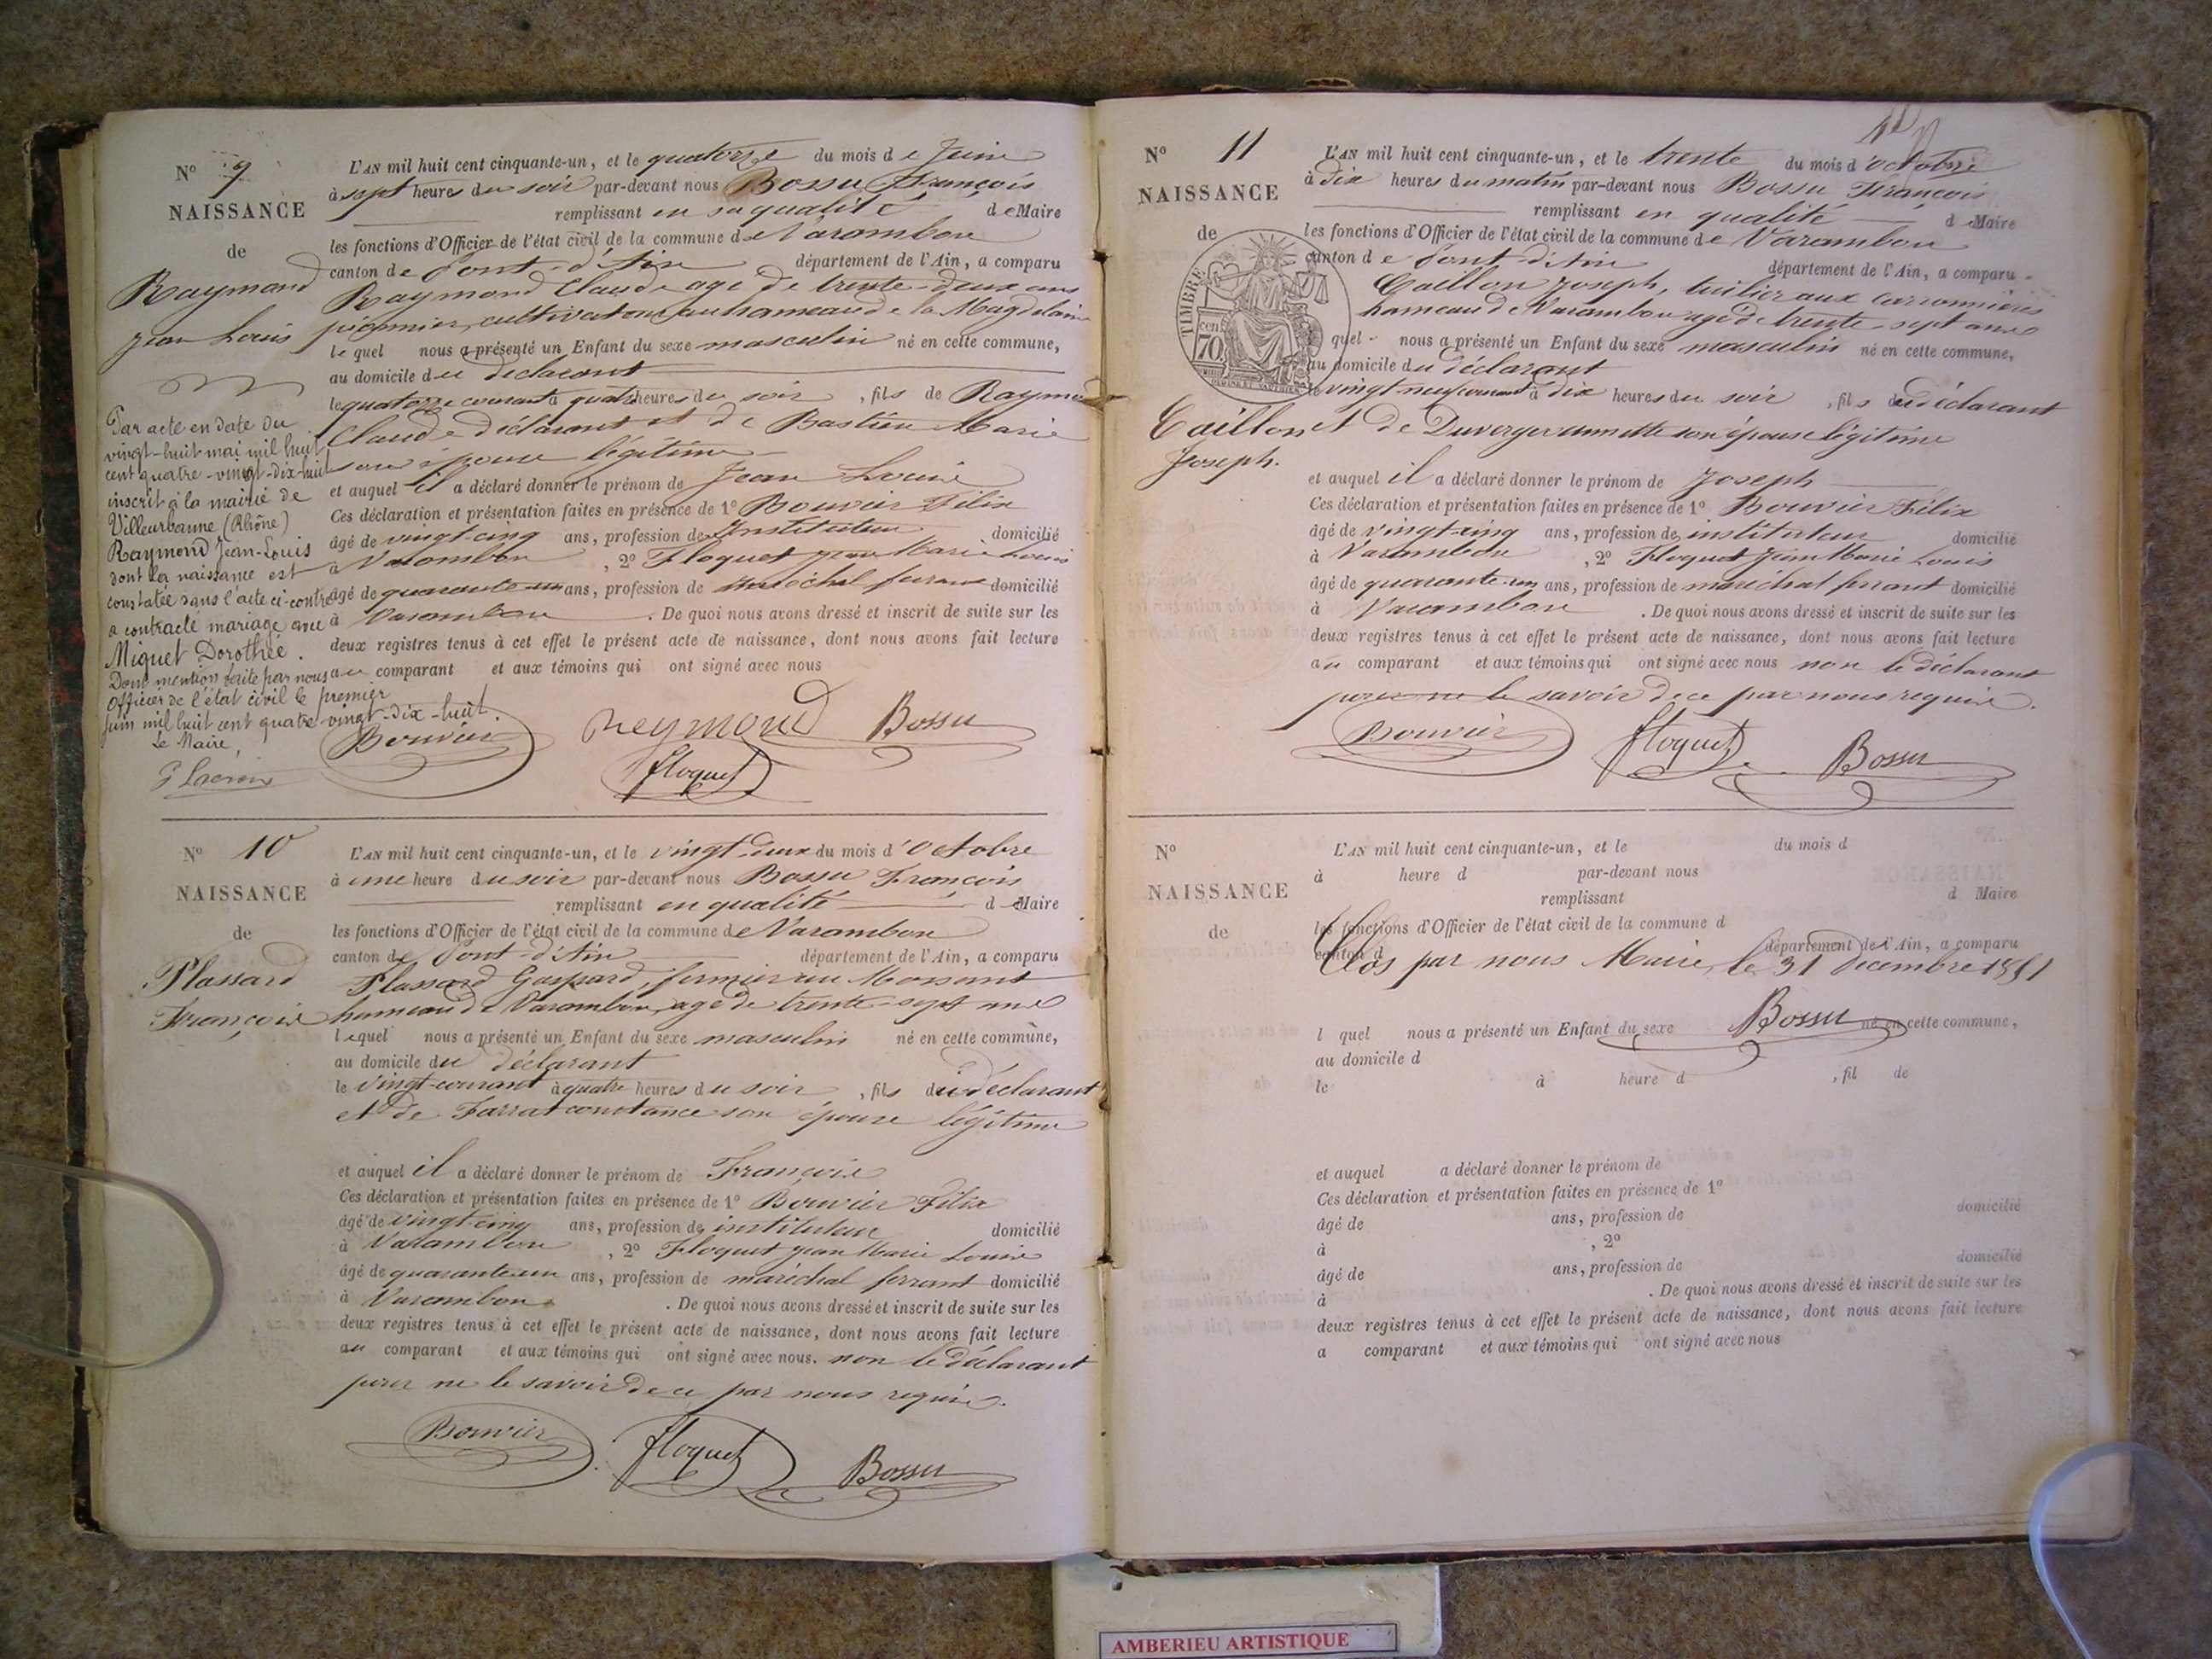 N° 9
NAISSANCE
de
Raymond
Jean Louis
Par acte en date du
vingt-huit mai mil huit
cent quatre-vingt-dix-huit
inscrit à la mairie de
Villeurbanne (Rhône)
Raymond Jean-Louis
dont la naissance est
constatée dans l'acte ci-contre
a contracté mariage avec
Miquet Dorothée.
Dont mention faite par nous
officier de l'état civil le premier
juin mil huit cent quatre-vingt-dix-huit.
Le Maire,
L'AN mil huit cent cinquante-un, et le quatorze du mois de Juin
à sept heures du soir par-devant nous Bossu François
remplissant en sa qualité de Maire
les fonctions d'Officier de l'état civil de la commune de Varambon
canton de Pont-d'Ain département de l'Ain, a comparu
Raymond Claude age de trente-deux ans
cultivateur au hameau de la Magdelaine
lequel nous a présenté un Enfant du sexe masculin né en cette commune,
au domicile du déclarant
le quatorze courant à quatre heures du soir, fils de Raymond
Claude déclarant et de Bastien Marie
son épouse légitime
et auquel il a déclaré donner le prénom de Jean Louis
Ces déclaration et présentation faites en présence de 1° Bouvier Félix
âgé de vingt-cinq ans, profession de Instituteur domicilié
à Varambon, 2° Floquet Jean Marie Louis
âgé de quarante-un ans, profession de maréchal ferrant domicilié
à Varambon. De quoi nous avons dressé et inscrit de suite sur les
deux registres tenus à cet effet le présent acte de naissance, dont nous avons fait lecture
au comparant et aux témoins qui ont signé avec nous
Bouvier Reymond Bossu
Floquet
N° 10
NAISSANCE
de
Plassard
François
L'AN mil huit cent cinquante-un, et le vingt-deux du mois d'Octobre
à une heure du soir par-devant nous Bossu François
remplissant en qualité de Maire
les fonctions d'Officier de l'état civil de la commune de Varambon
canton de Pont-d'Ain département de l'Ain, a comparu
Plassard Gaspard, fermier au
hameau de Varambon, age de trente-sept ans
lequel nous a présenté un Enfant du sexe masculin né en cette commune,
au domicile du déclarant
le vingt courant à quatre heures du soir, fils du déclarant
et de Farrat constance son épouse légitime
et auquel il a déclaré donner le prénom de François
Ces déclaration et présentation faites en présence de 1° Bouvier Félix
âgé de vingt-cinq ans, profession de instituteur domicilié
à Varambon, 2° Floquet Jean Marie Louis
âgé de quarante-un ans, profession de maréchal ferrant domicilié
à Varambon. De quoi nous avons dressé et inscrit de suite sur les
deux registres tenus à cet effet le présent acte de naissance, dont nous avons fait lecture
au comparant et aux témoins qui ont signé avec nous. non le déclarant
pour ne le savoir de ce par nous requis.
Bouvier Floquet Bossu
N° 11
NAISSANCE
de
TIMBRE
70 cen
Caillon
Joseph.
L'AN mil huit cent cinquante-un, et le trente du mois d'octobre
à dix heures du matin par-devant nous Bossu François
remplissant en qualité de Maire
les fonctions d'Officier de l'état civil de la commune de Varambon
canton de Pont-d'Ain département de l'Ain, a comparu
Caillon Joseph, tuilier aux carronnières
hameau de Varambon age de trente-sept ans
quel nous a présenté un Enfant du sexe masculin né en cette commune,
au domicile du déclarant
le vingt-neuf courant à dix heures du soir, fils du déclarant
et de Duverger annette son épouse légitime
et auquel il a déclaré donner le prénom de Joseph
Ces déclaration et présentation faites en présence de 1° Bouvier Félix
âgé de vingt-cinq ans, profession de instituteur domicilié
à Varambon, 2° Floquet Jean Marie Louis
âgé de quarante-un ans, profession de maréchal ferrant domicilié
à Varambon. De quoi nous avons dressé et inscrit de suite sur les
deux registres tenus à cet effet le présent acte de naissance, dont nous avons fait lecture
au comparant et aux témoins qui ont signé avec nous non le déclarant
pour ne le savoir de ce par nous requis.
Bouvier Floquet Bossu
N°
NAISSANCE
de
L'AN mil huit cent cinquante-un, et le du mois d
à heure d par-devant nous
remplissant d Maire
les fonctions d'Officier de l'état civil de la commune d
canton d département de l'Ain, a comparu
Clos par nous Maire, le 31 Décembre 1851
Bossu
l quel nous a présenté un Enfant du sexe né en cette commune,
au domicile d
le à heure d, fil de
et auquel a déclaré donner le prénom de
Ces déclaration et présentation faites en présence de 1°
âgé de ans, profession de domicilié
à, 2°
âgé de ans, profession de domicilié
à. De quoi nous avons dressé et inscrit de suite sur les
deux registres tenus à cet effet le présent acte de naissance, dont nous avons fait lecture
a comparant et aux témoins qui ont signé avec nous
AMBERIEU ARTISTIQUE